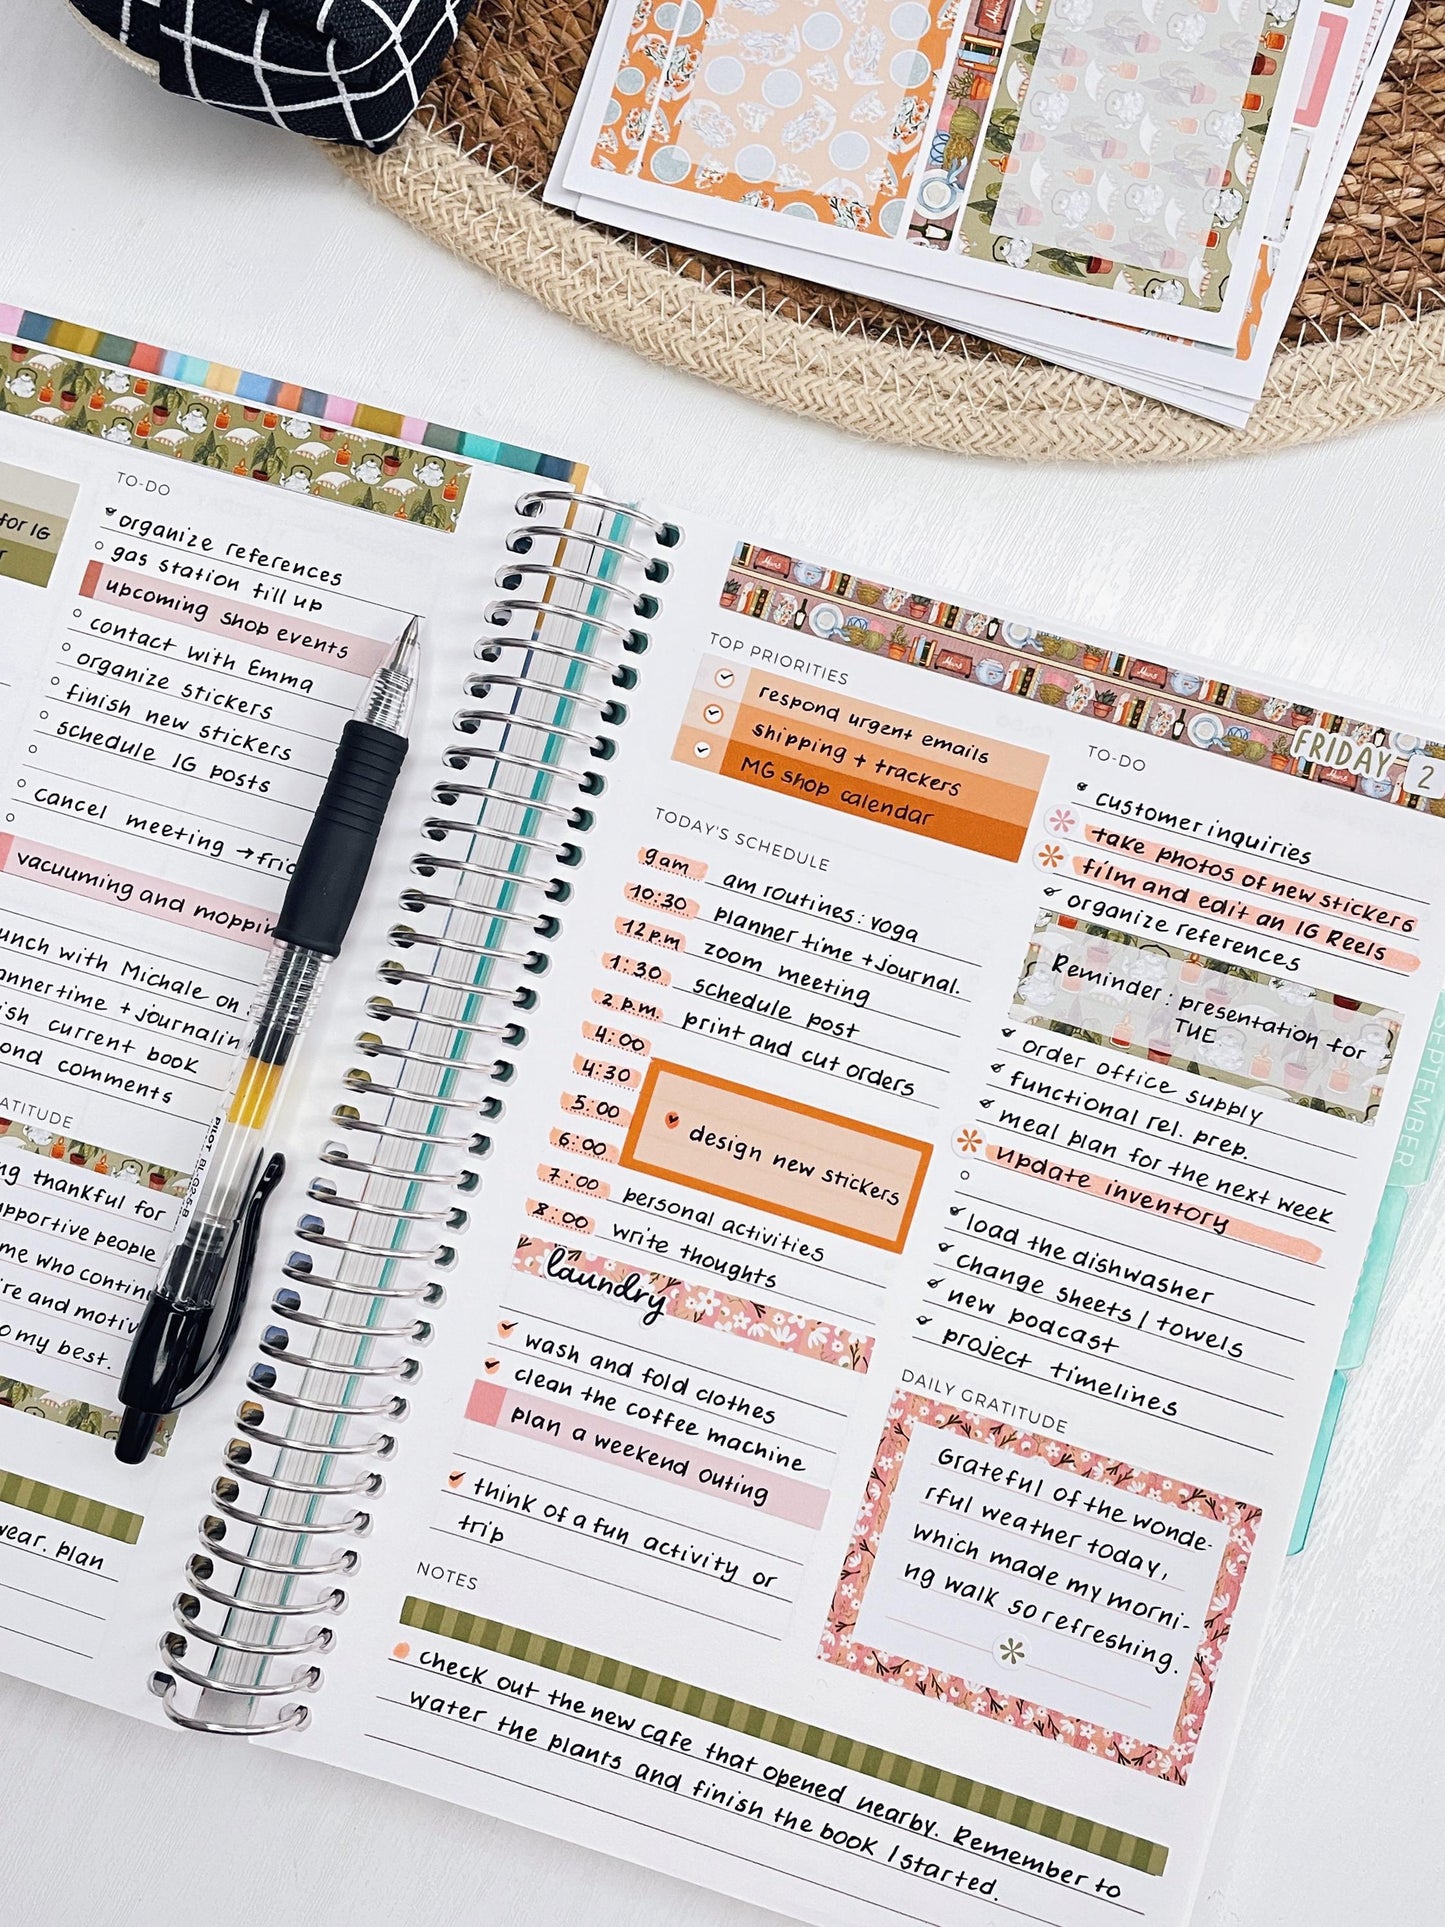 for IG
TO-DO
organize references
gas station fill up
upcoming shop events
contact with Emma
organize stickers
finish new stickers
schedule IG posts
cancel meeting →
vacuuming and
with Michale on
time + journalin
current book
comments
thankful for
people
me who
and
to my best.
wear. plan
PILOT BL-G2-5-B
FRIDAY 2
TOP PRIORITIES
respond urgent emails
shipping + trackers
MG shop calendar
TODAY'S SCHEDULE
9am am routines: yoga
10:30 planner time + journal.
12pm zoom meeting
1:30 schedule post
2 p.m. print and cut orders
4:00
4:30
5:00 design new stickers
6:00
7:00 personal activities
8:00 write thoughts
laundry
wash and fold clothes
clean the coffee machine
plan a weekend outing
think of a fun activity or
trip
TO-DO
customer inquiries
take photos of new stickers
film and edit an IG Reels
organize references
Reminder: presentation for
TUE
order office supply
functional rel. prep.
meal plan for the next week
update inventory
load the dishwasher
change sheets / towels
new podcast
project timelines
DAILY GRATITUDE
Grateful of the wonde-
rful weather today,
which made my morni-
ng walk so refreshing.
NOTES
check out the new cafe that opened nearby. Remember to
water the plants and finish the book I started.
SEPTEMBER